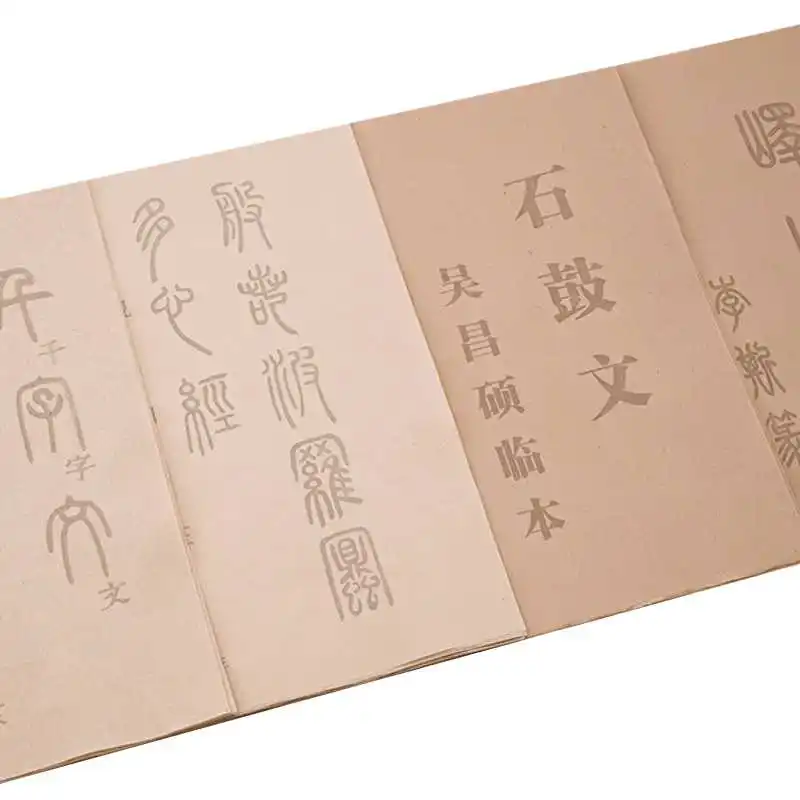 千字文
千
字
文
般若波羅蜜
多心經
石鼓文
吴昌硕临本
嶧山
李斯篆